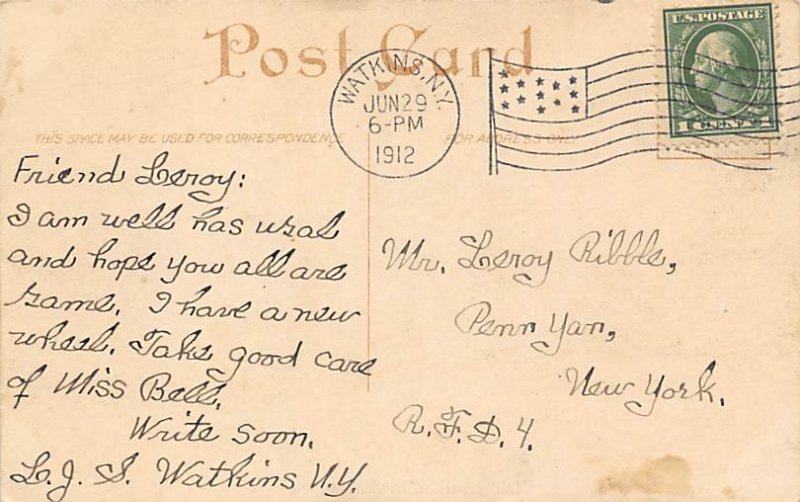 Post Card
WATKINS, N.Y.
JUN 29
6-PM
1912
U.S. POSTAGE
1 CENT 1
THIS SPACE MAY BE USED FOR CORRESPONDENCE
FOR ADDRESS ONLY
Friend Leroy:
I am well has usal
and hope you all are
same. I have a new
wheel. Take good care
of Miss Bell.
Write soon.
L. J. S. Watkins N.Y.
Mr. Leroy Ribble,
Penn Yan,
New York.
R.F.D. 4.